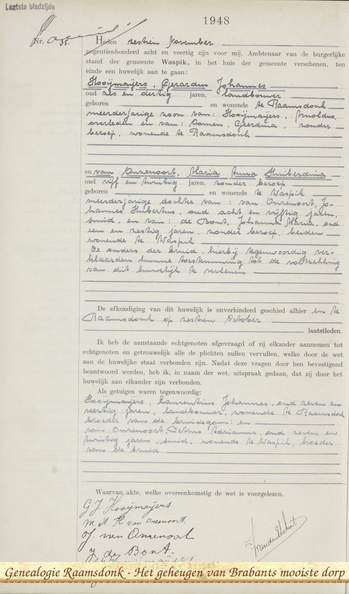 Laatste bladzijde
1948
Nr. 35.
Heden zestien November
negentienhonderd acht en veertig zijn voor mij, Ambtenaar van de burgerlijke
stand der gemeente Waspik, in het huis der gemeente verschenen, ten
einde een huwelijk aan te gaan:
Hooijmaijers, Gerardus Johannes
oud zes en dertig jaren, landbouwer
geboren en wonende te Raamsdonk
meerderjarige zoon van: Hooijmaijers,
overleden en van: Gerdina, zonder
beroep, wonende te Raamsdonk
en van Onzenoort, Maria Anna Huiberdina
oud vijf en twintig jaren, zonder beroep
geboren en wonende te Waspik
meerderjarige dochter van: van Onzenoort, Jo-
hannes Hubertus, oud acht en vijftig jaren,
smid, en van: de Bont, Johanna Maria, oud
een en zestig jaren, zonder beroep, beiden
wonende te Waspik
De ouders der bruid, hierbij tegenwoordig ver-
klaarden hunne toestemming tot de voltrekking
van dit huwelijk te verlenen
De afkondiging van dit huwelijk is onverhinderd geschied alhier en te
Raamsdonk op October
laatstleden.
Ik heb de aanstaande echtgenoten afgevraagd of zij elkander aannemen tot
echtgenoten en getrouwelijk alle de plichten zullen vervullen, welke door de wet
aan de huwelijke staat verbonden zijn. Nadat deze vragen door hen bevestigend
beantwoord werden, heb ik, in naam der wet, uitspraak gedaan, dat zij door het
huwelijk aan elkander zijn verbonden.
Als getuigen waren tegenwoordig:
Hooijmaijers, Laurentius Johannes, oud zeven en
veertig jaren, landbouwer, wonende te Raamsdonk
broeder van de bruidegom; en
van Onzenoort, Petrus Adrianus, oud zeven en
twintig jaren, smid, wonende te Waspik, broeder
van de bruid
Waarvan akte, welke overeenkomstig de wet is voorgelezen.
G J Hooijmaijers
M. A. H. van Onzenoort
J. van Onzenoort
J. de Bont
Hooijmaijers
Genealogie Raamsdonk - Het geheugen van Brabants mooiste dorp